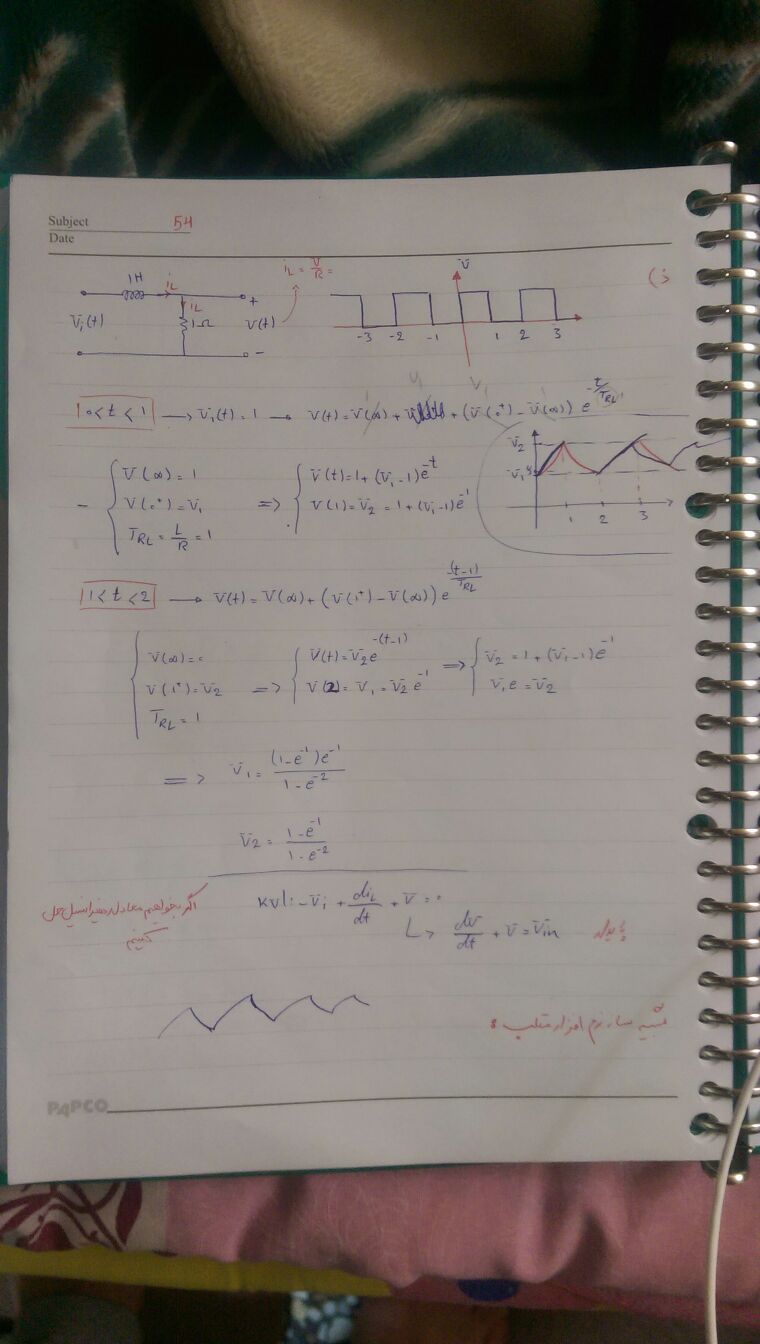 Subject 54
Date
1H i_L i_L = V/R =
V_i(t) i_L 1Ω + V(t) -
V
-3 -2 -1 1 2 3
0 < t < 1 → V_i(t) = 1 → V(t) = V(∞) + (V(0⁺) - V(∞)) e^(-t/T_RL)
V(∞) = 1
V(0⁺) = V_1
T_RL = L/R = 1
=> V(t) = 1 + (V_1 - 1)e^-t
V(1) = V_2 = 1 + (V_1 - 1)e^-1
V_2
V_1
1 2 3
1 < t < 2 → V(t) = V(∞) + (V(1⁺) - V(∞)) e^(-(t-1)/T_RL)
V(∞) = 0
V(1⁺) = V_2
T_RL = 1
=> V(t) = V_2 e^-(t-1)
V(2) = V_1 = V_2 e^-1
=> V_2 = 1 + (V_1 - 1)e^-1
V_1 e = V_2
=> V_1 = (1 - e^-1)e^-1 / (1 - e^-2)
V_2 = (1 - e^-1) / (1 - e^-2)
اگر بخواهیم معادله دیفرانسیل حل
کنیم
KVL: -V_i + di_L/dt + V = 0
↳ dV/dt + V = V_in
نرم افزار متلب
PAPCO